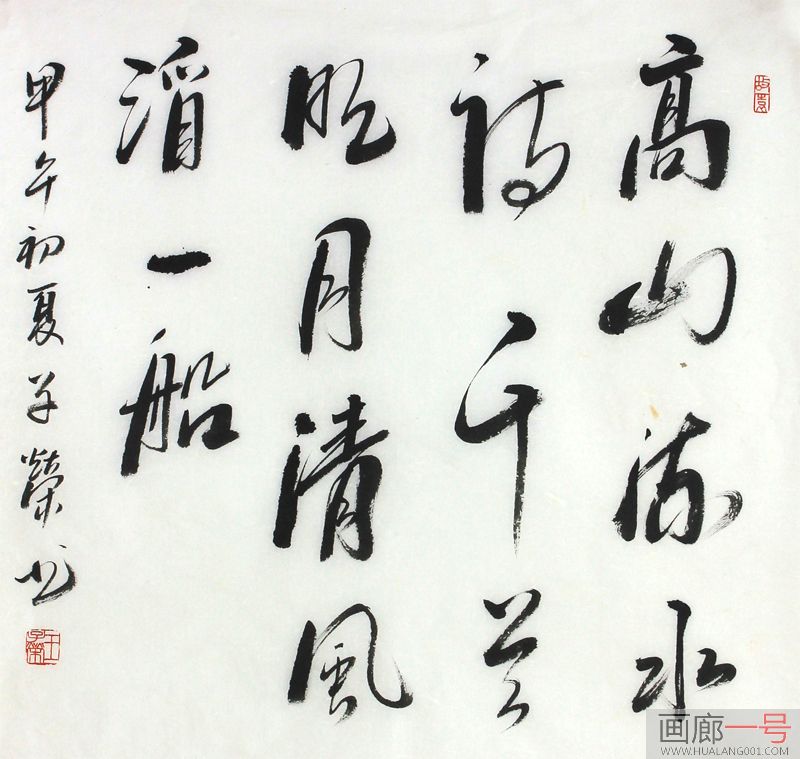 高山流水
詩千首
明月清風
酒一船
甲午初夏子榮书
王子榮
画廊一号
WWW.HUALANG001.COM